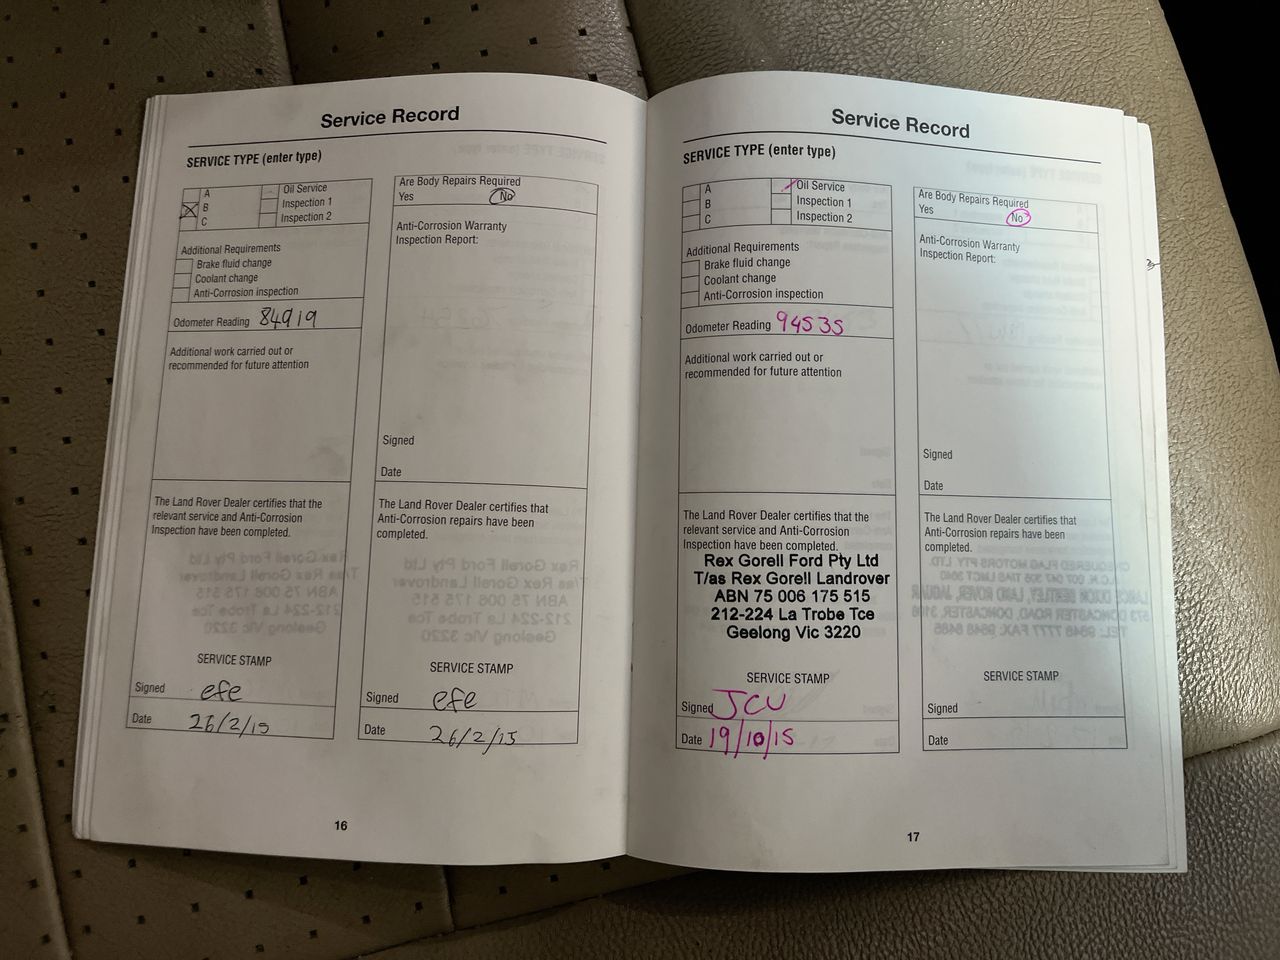 Service Record
SERVICE TYPE (enter type)
A
B
C
Oil Service
Inspection 1
Inspection 2
Additional Requirements
Brake fluid change
Coolant change
Anti-Corrosion inspection
Odometer Reading 84919
Additional work carried out or
recommended for future attention
The Land Rover Dealer certifies that the
relevant service and Anti-Corrosion
Inspection have been completed.
SERVICE STAMP
Signed efe
Date 26/2/15
Are Body Repairs Required
Yes No
Anti-Corrosion Warranty
Inspection Report:
Signed
Date
The Land Rover Dealer certifies that
Anti-Corrosion repairs have been
completed.
SERVICE STAMP
Signed efe
Date 26/2/15
16
Service Record
SERVICE TYPE (enter type)
A
B
C
Oil Service
Inspection 1
Inspection 2
Additional Requirements
Brake fluid change
Coolant change
Anti-Corrosion inspection
Odometer Reading 94535
Additional work carried out or
recommended for future attention
The Land Rover Dealer certifies that the
relevant service and Anti-Corrosion
Inspection have been completed.
Rex Gorell Ford Pty Ltd
T/as Rex Gorell Landrover
ABN 75 006 175 515
212-224 La Trobe Tce
Geelong Vic 3220
SERVICE STAMP
Signed JCU
Date 19/10/15
Are Body Repairs Required
Yes No
Anti-Corrosion Warranty
Inspection Report:
Signed
Date
The Land Rover Dealer certifies that
Anti-Corrosion repairs have been
completed.
SERVICE STAMP
Signed
Date
17